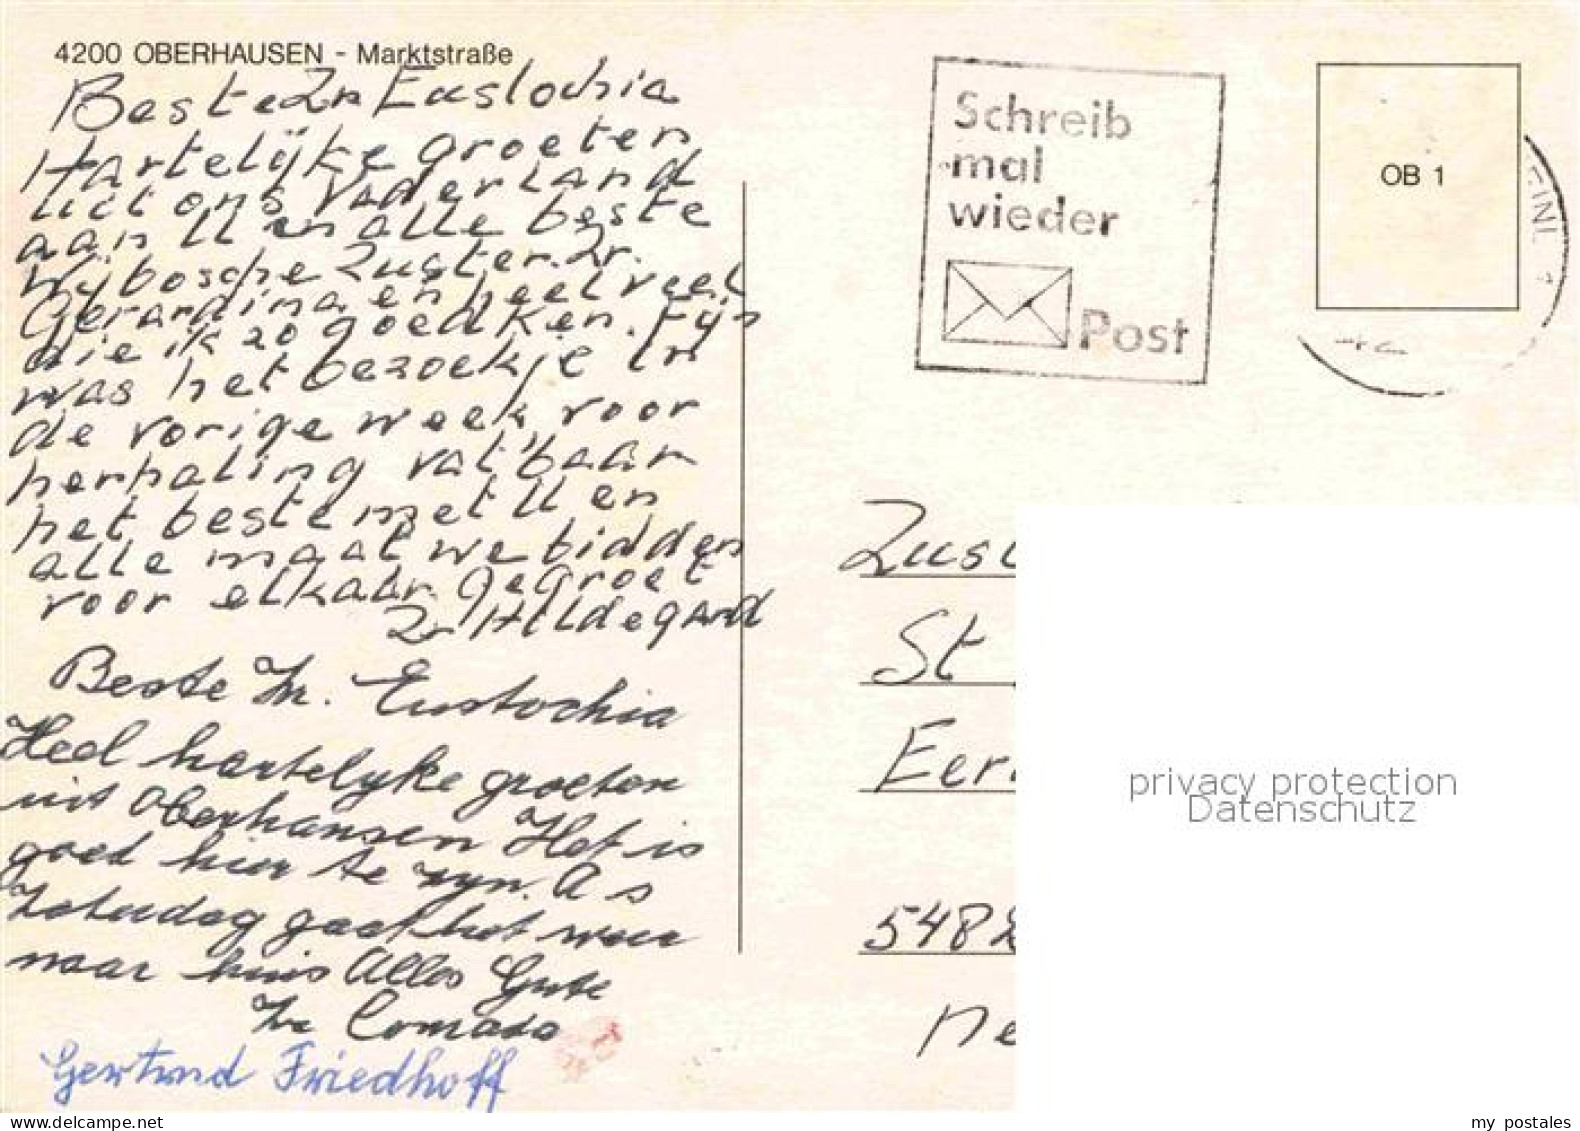 4200 OBERHAUSEN - Marktstraße
Beste Zr Euslochia
Hartelijke groeten
uit ons Vaderland
aan U en alle beste
Wijbosche Zuster. Zr.
Gerardina en heel veel
die ik zo goed ken. Fijn
was het bezoekje in
de vorige week, voor
herhaling vatbaar
het beste met U en
alle maal we bidden
voor elkaar gegroet
Zr Hildegard
Beste Zr. Eustochia
Heel hartelyke groeten
uit Oberhausen Het is
goed hier te zyn. A s
Zaterdag gaat het weer
naar huis Alles Gute
Zr Conrada
Gertrud Friedhoff
Schreib
mal
wieder
Post
OB 1
Zus
St
Eer
5482
Ne
privacy protection
Datenschutz
www.delcampe.net
my postales